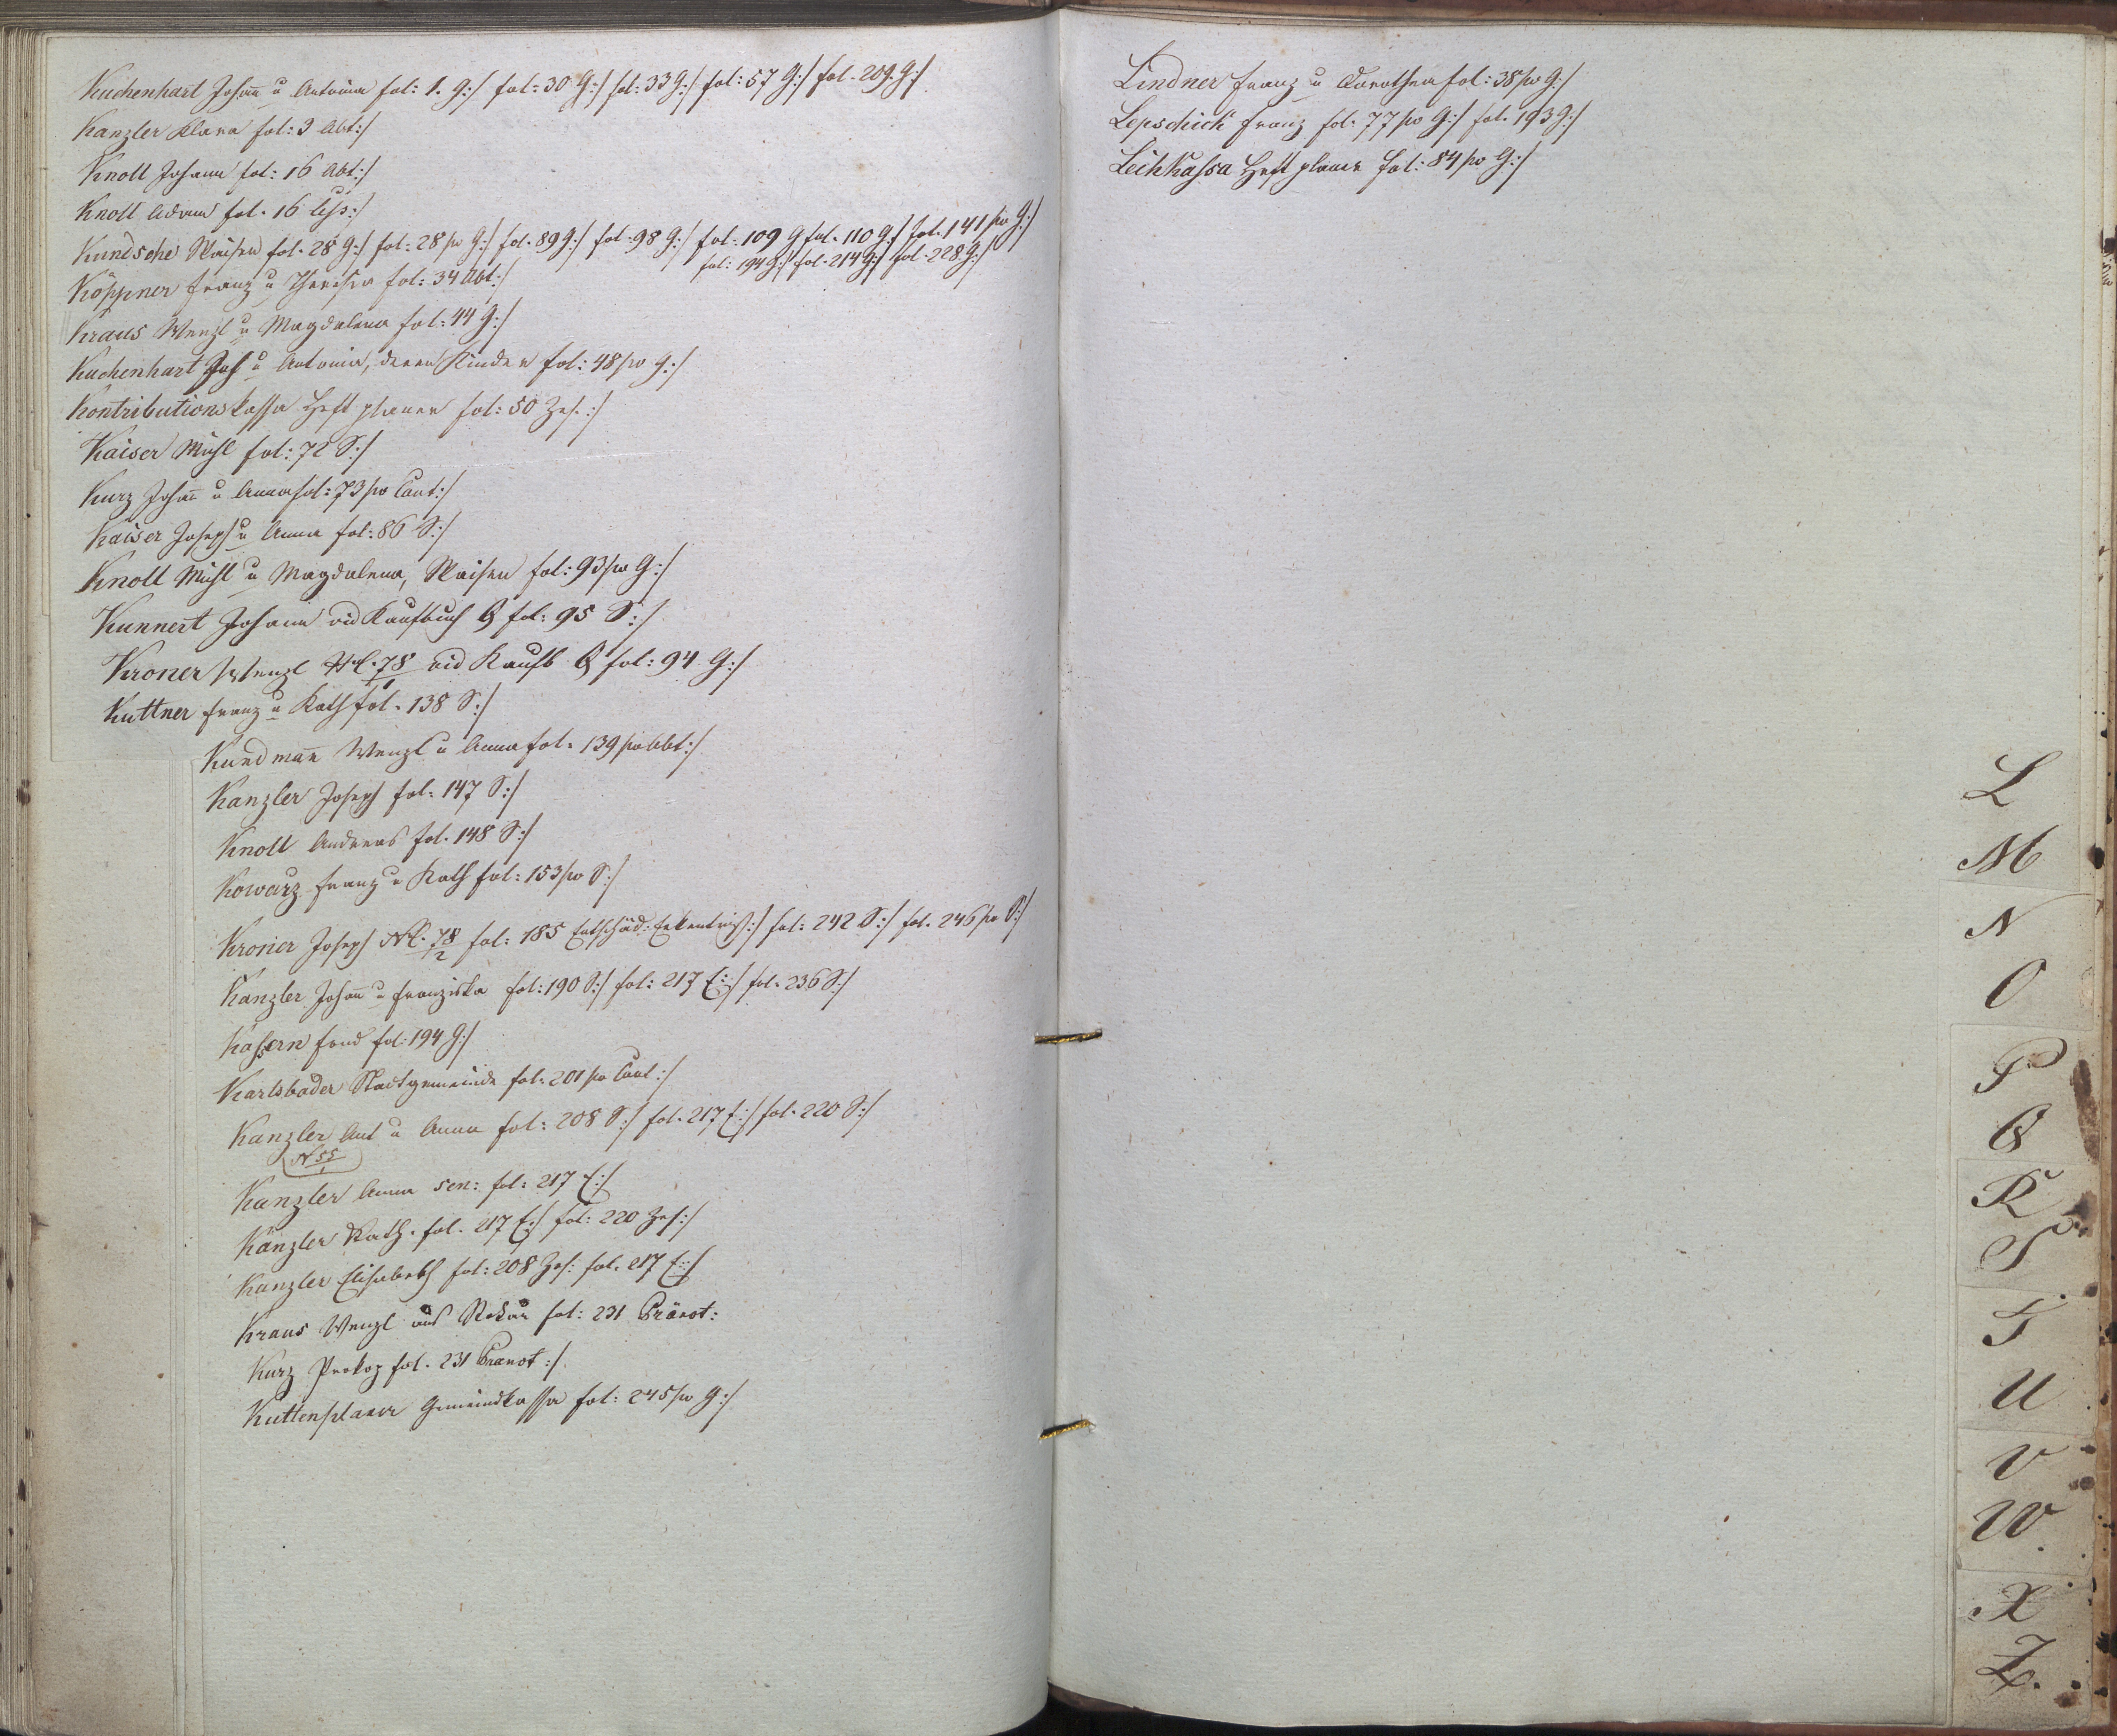 Kuchenhart Johann u Antonia fol: 1. G:/ fol: 30 G:/ fol: 33 G:/ fol: 57 G:/ fol. 209. G:/
Kanzler Klara fol: 9 Abt:/
Knoll Johann fol: 16 Abt:/
Knoll Adam fol. 16
Kundsche Waisen fol. 28 G:/ fol: 28 po G:/ fol. 89 G:/ fol. 98 G:/ fol: 109 G fol. 110 G:/ fol. 141 po G:/
fol: 194 G:/ fol. 214 G:/ fol. 228 G:/
Köppner Franz u Theresia fol: 34 Abt:/
Kraus Wenzl u Magdalena fol: 44 G:/
Kuchenhart Joh u Antonia, deren Kinder fol: 48 po G:/
Kontributionskassa Heft planer fol: 50 Zes.:/
Kaiser Michl fol: 72 S:/
Kurz Johann u Anna fol: 73 po Caut:/
Kaiser Joseph u Anna fol: 86 S:/
Knoll Michl u Magdalena, Waisen fol: 93 po G:/
Kunnert Johann vid Kaufbuch Q fol: 95 S:/
Kroner Wenzl 78 vid Kaufb Q fol: 94 G:/
Kuttner Franz u Kath fol. 138 S:/
Kundmann Wenzl u Anna fol. 139 po Abt:/
Kanzler Joseph fol. 147 S:/
Knoll Andreas fol. 148 S:/
Kowarz Franz u Kath fol: 153 po S:/
Kroner Joseph NC. 78/2 fol: 185 Entschäd: Erkentniß:/ fol: 242 S:/ fol. 246 po S:/
Kanzler Johann u Franziska fol: 190 S:/ fol: 217 E:/ fol. 236 S:/
Kaßern fond fol: 194 G:/
Karlsbader Stadtgemeinde fol: 201 po Caut:/
Kanzler Ant u Anna fol: 208 S:/ fol. 217 E:/ fol. 220 S:/
N 55/1
Kanzler Anna sen: fol: 217 E:/
Kanzler Kath. fol. 217 E:/ fol: 220 Zes:/
Kanzler Elisabeth fol: 208 Zes: fol. 217 E:/
Kraus Wenzl aus fol: 231 Pränot:
Kurz Prokop fol. 231 Pranot:/
Kuttenplaner Gemeindkassa fol: 245 po G:/
Lindner Franz u Dorothea fol: 38 po G:/
Lepschick Franz fol. 77 po G:/ fol. 193 G:/
Leihkassa Heft planer fol: 84 po G:/
L
M
N
O
P
Q
R
S
T
U
V
W.
X
Z.